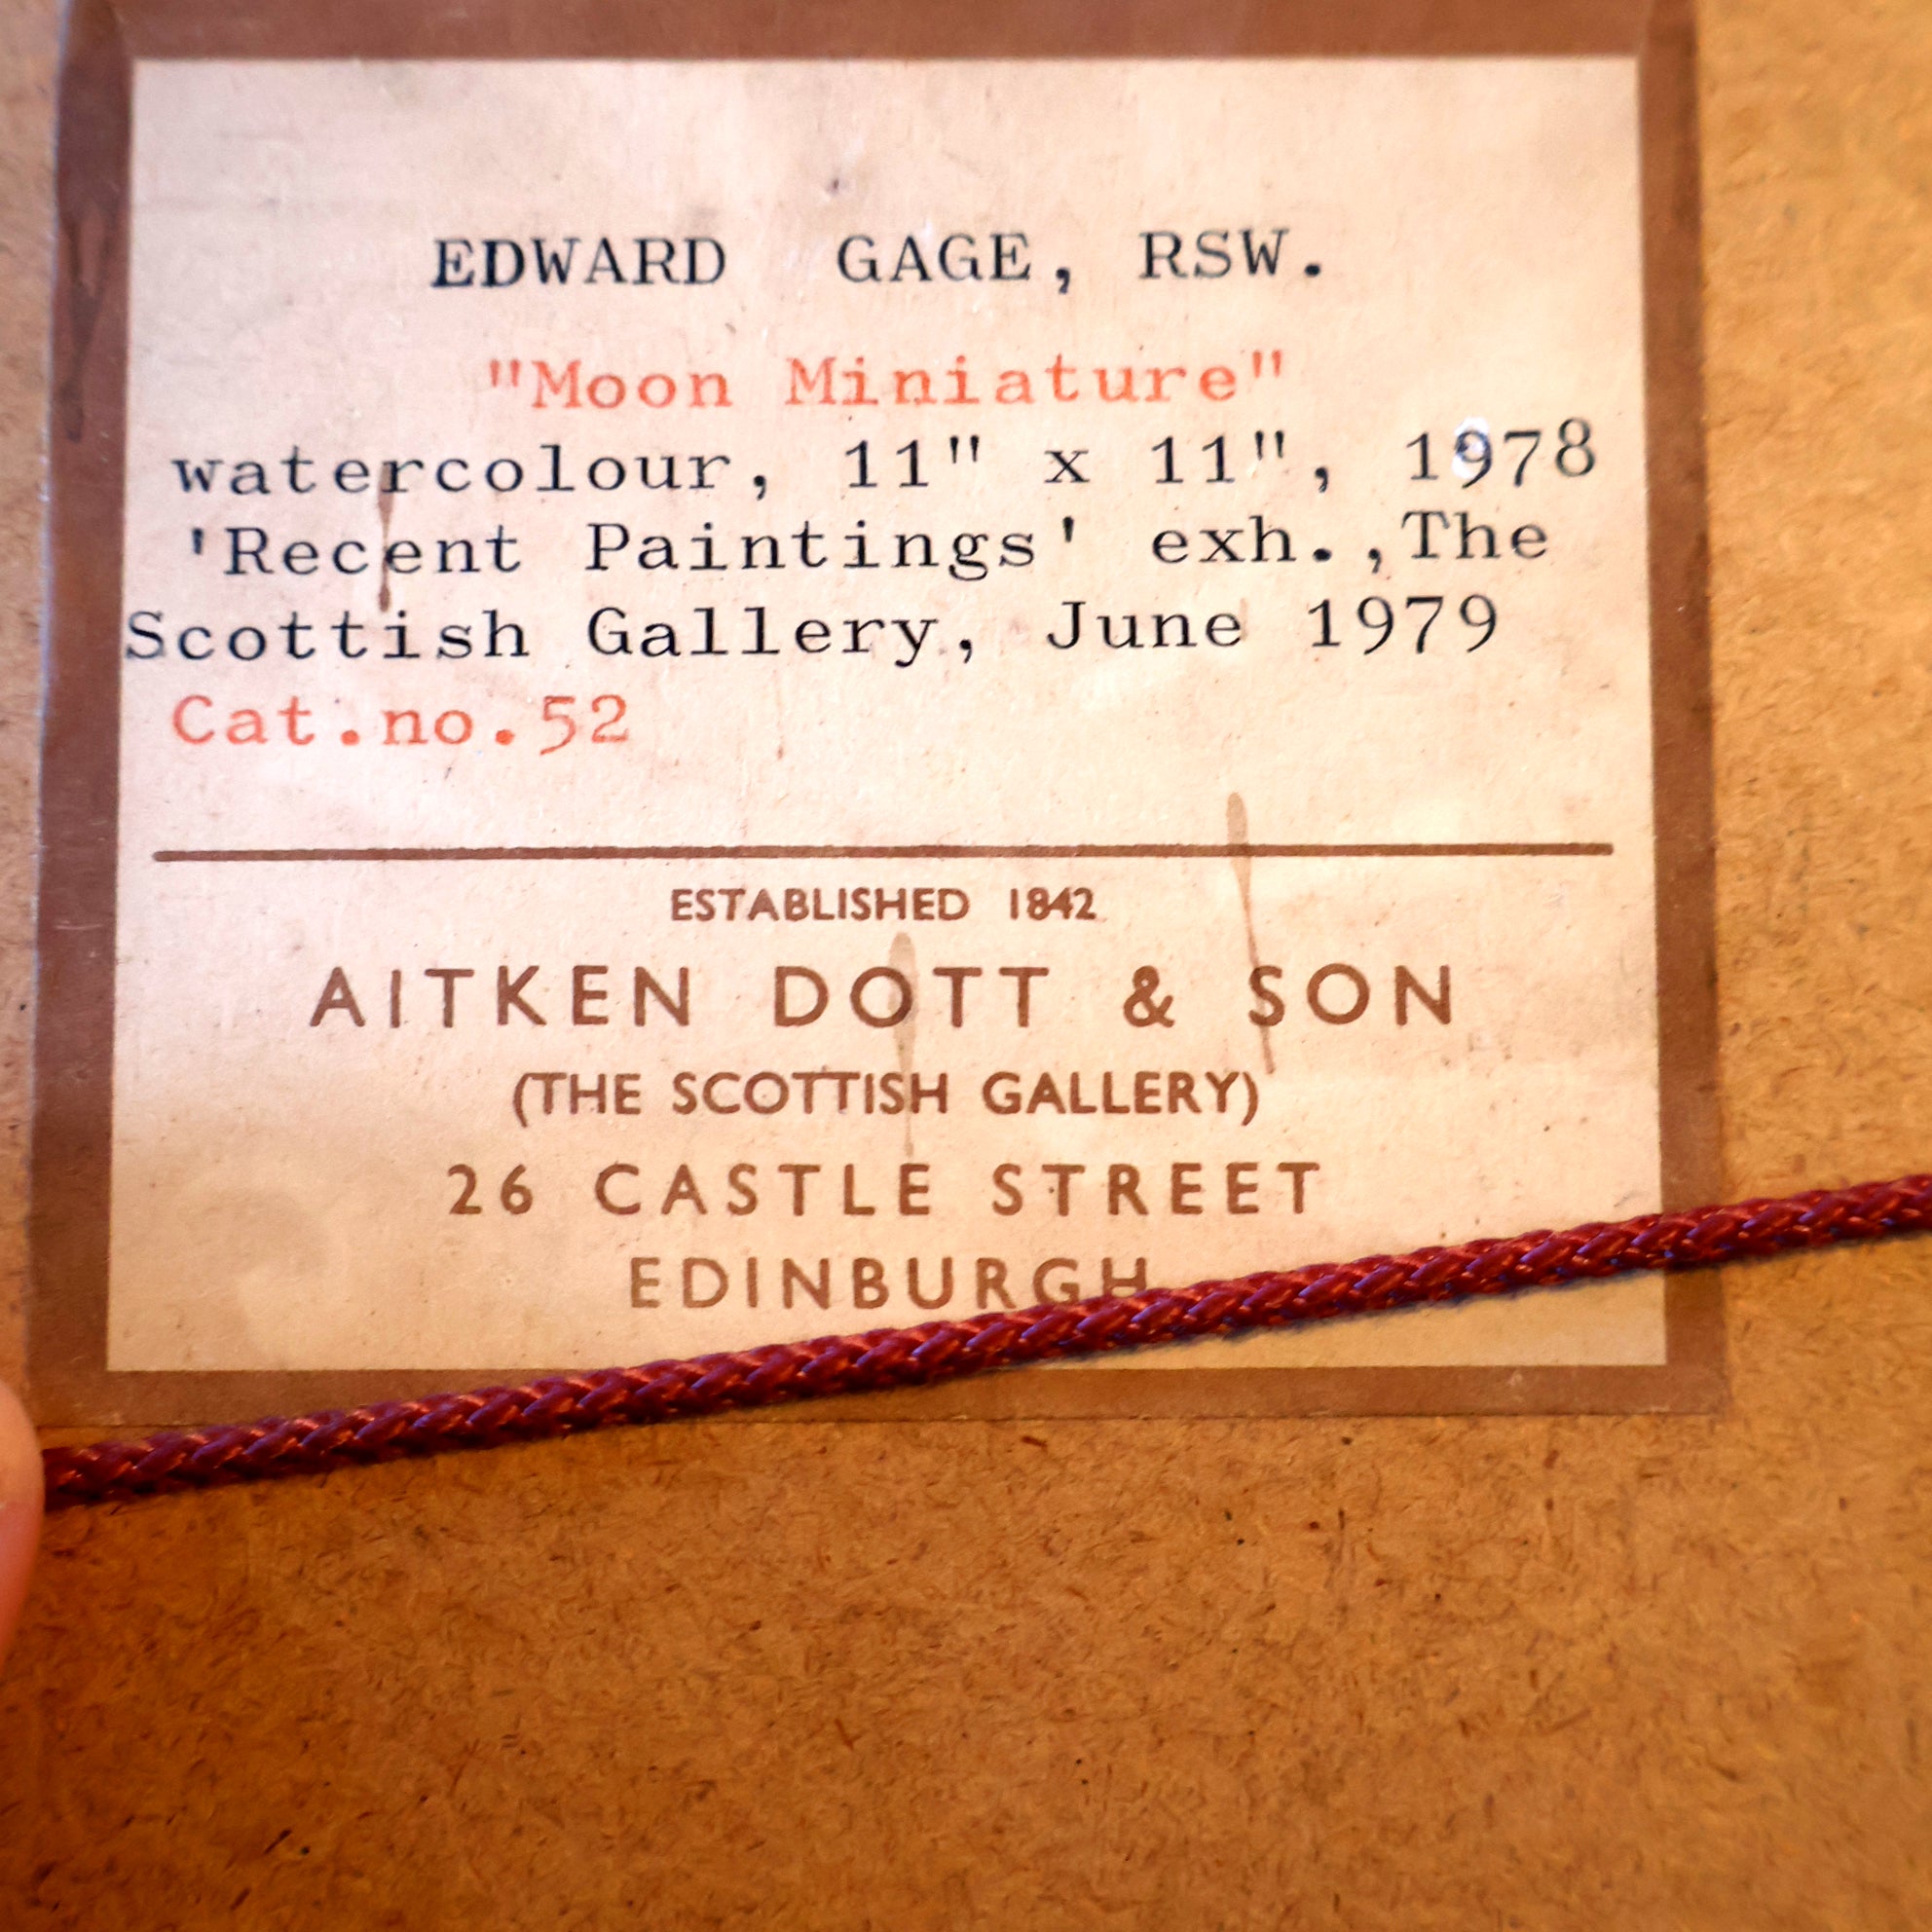 EDWARD GAGE, RSW.
"Moon Miniature"
watercolour, 11" x 11", 1978
'Recent Paintings' exh.,The
Scottish Gallery, June 1979
Cat.no.52
ESTABLISHED 1842
AITKEN DOTT & SON
(THE SCOTTISH GALLERY)
26 CASTLE STREET
EDINBURGH